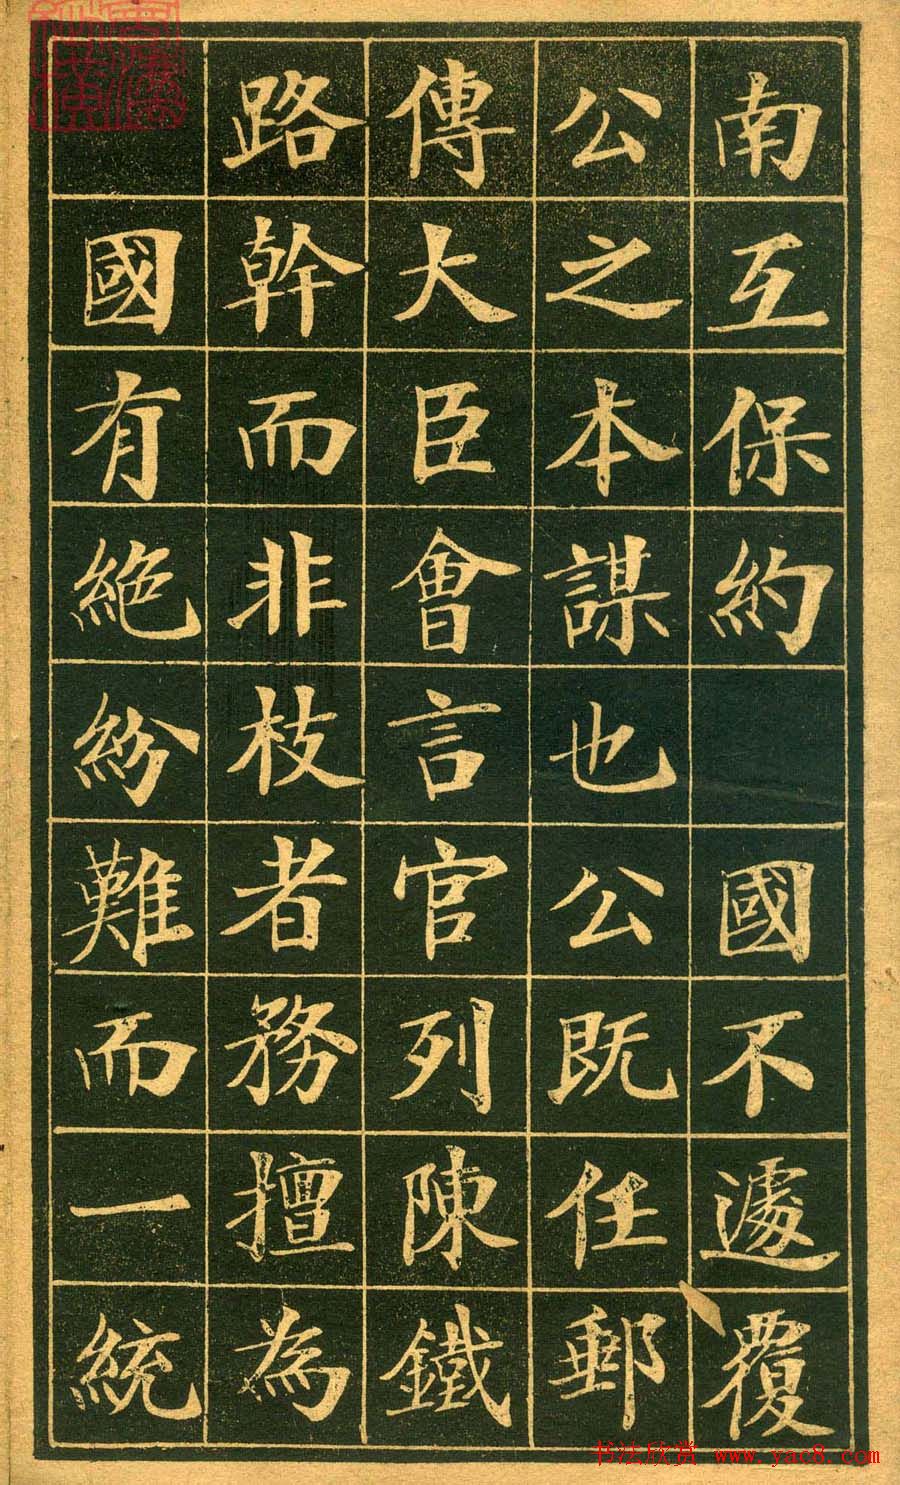 南互保約 國不遽覆
公之本謀也公既任郵
傳大臣會言官列陳鐵
路幹而非枝者務擅為
國有絕紛難而一統
书法欣赏 www.yac8.com